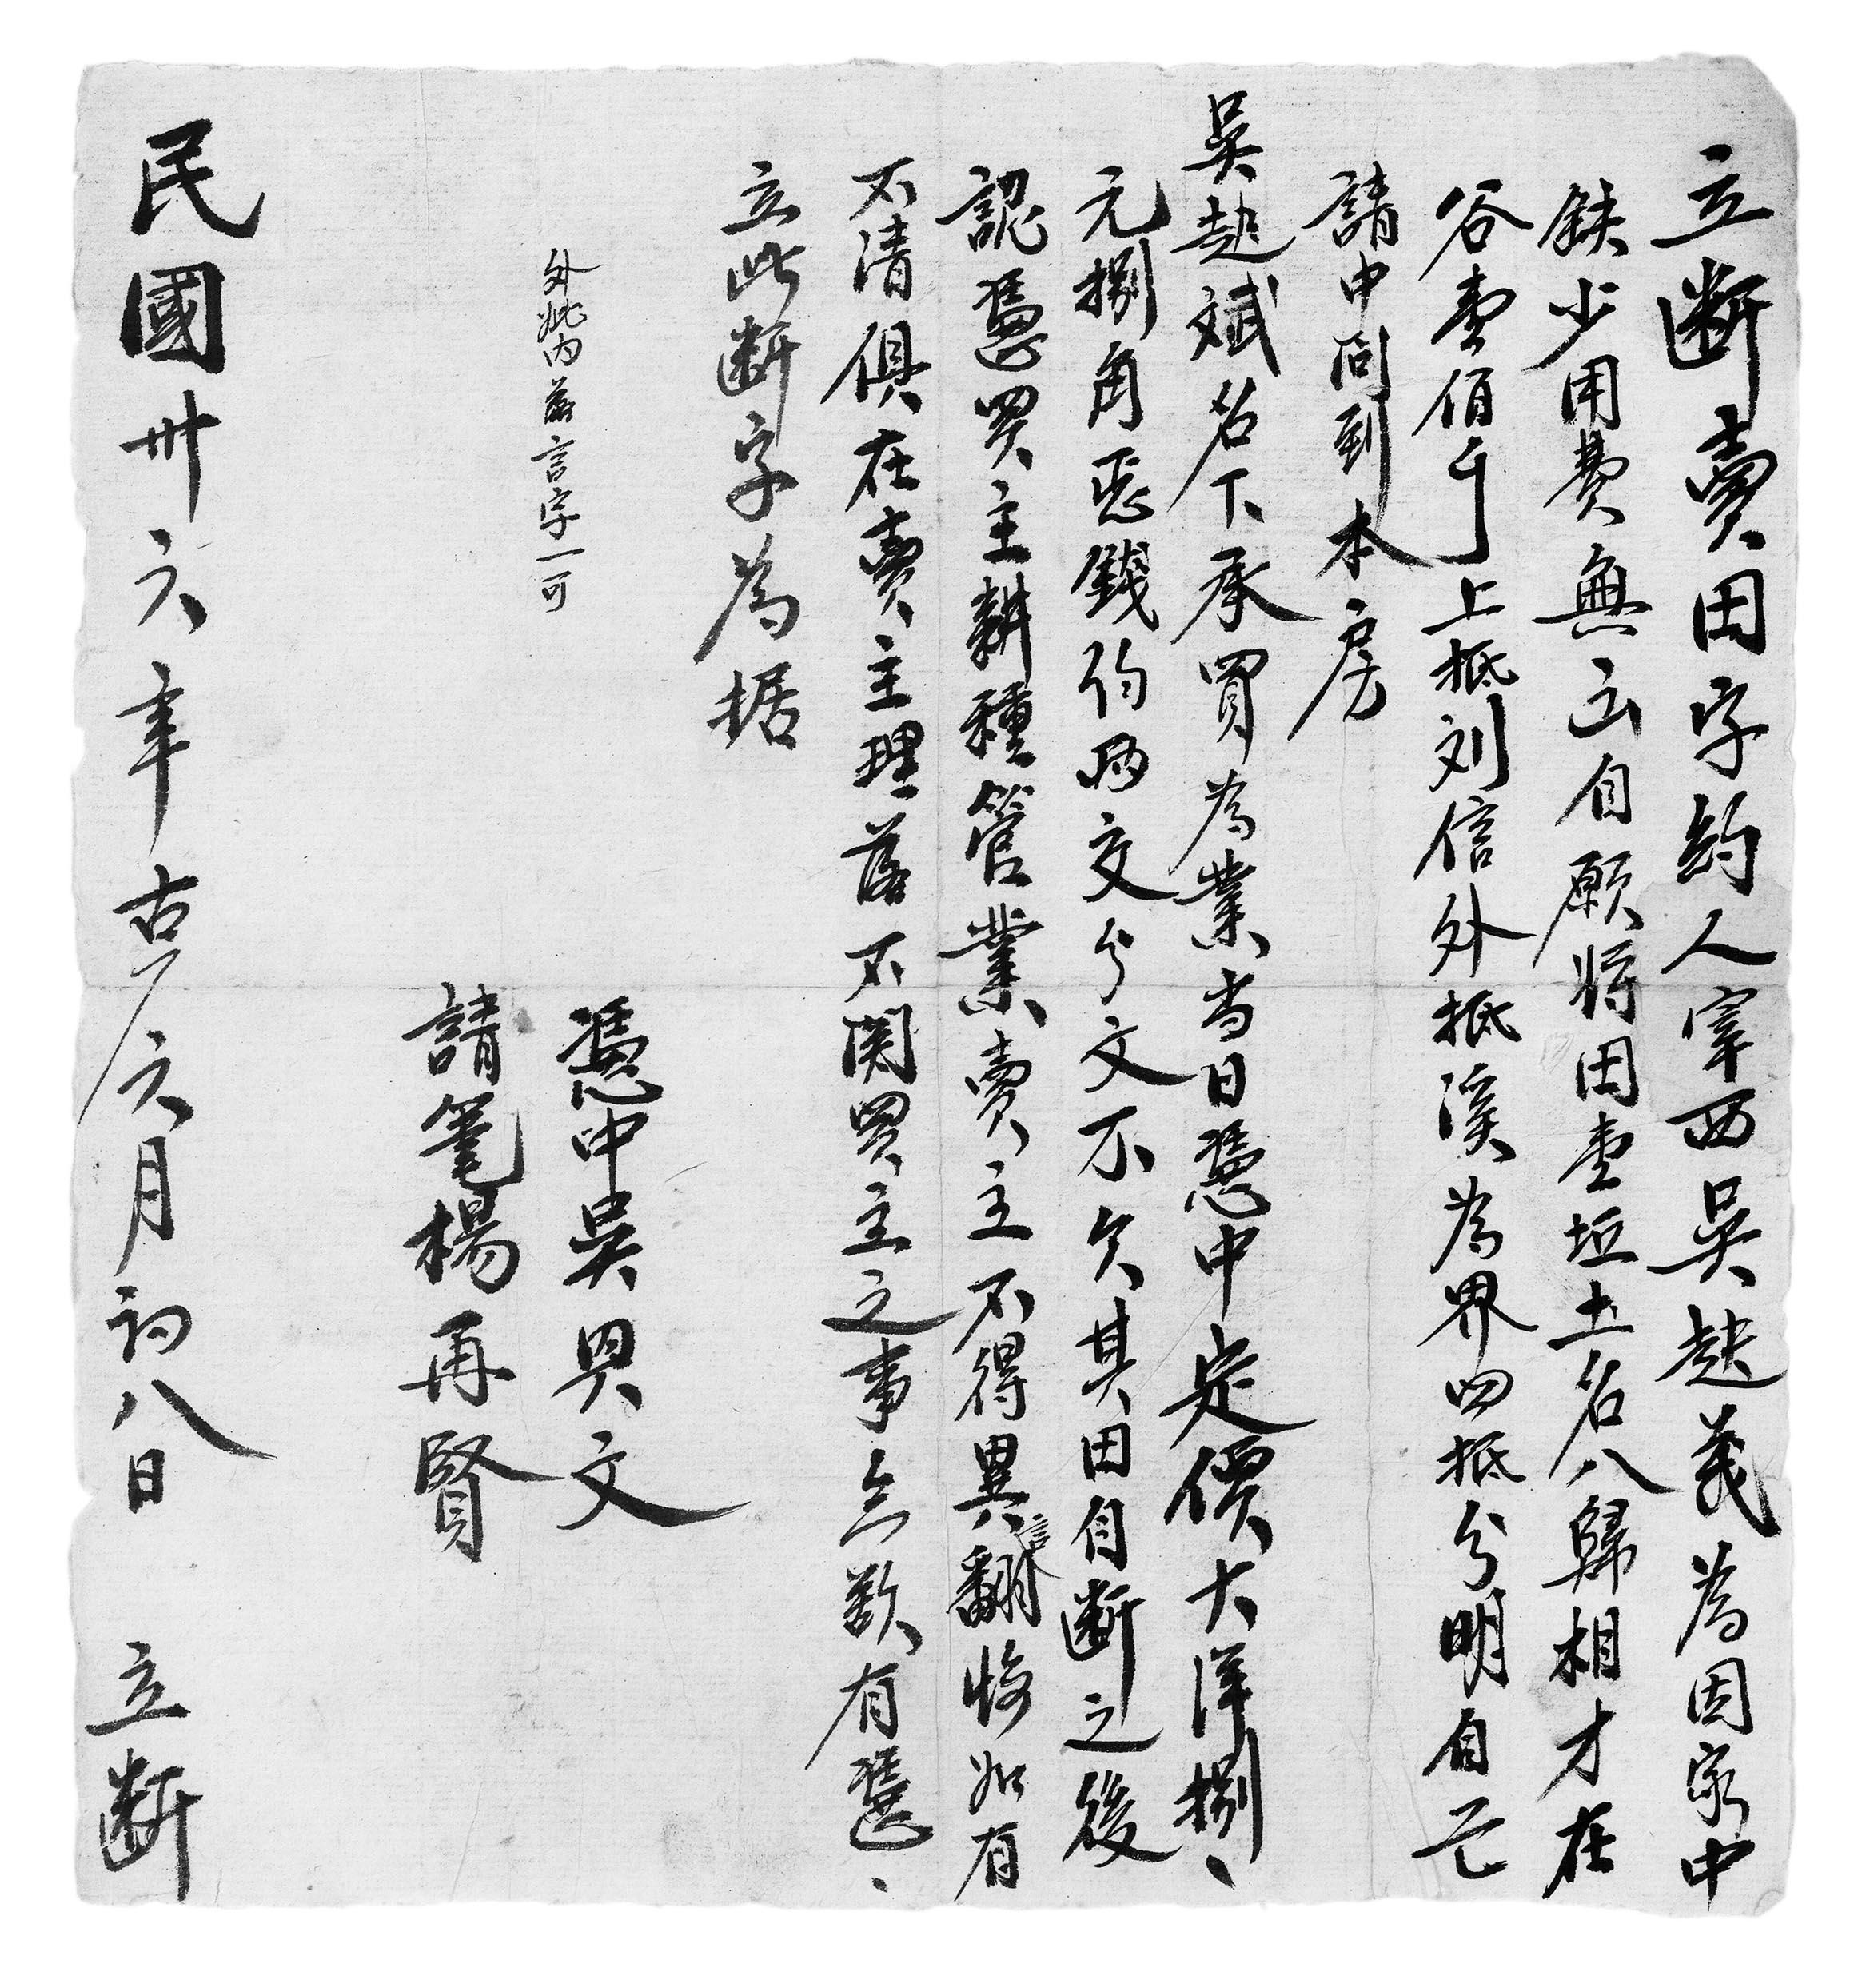 立断賣田字約人宰西吳赵義為因家中
缺少用費無出自願將田壹坵土名八歸相才在
谷壹佰斤上抵刘信外抵溪為界四抵分明自己
請中问到本房
吳赵斌名下承買為業当日憑中定價大洋捌
元捌角正錢约両交分文不欠其田自断之後
認憑買主耕種管業賣主不得異言翻悔如有
不清俱在賣主理落不関買主之事立欵有憑
立此断字為据
外批内落言字一可
憑中吳興文
請筆楊再賢
民國卅六年古六月初八日 立断